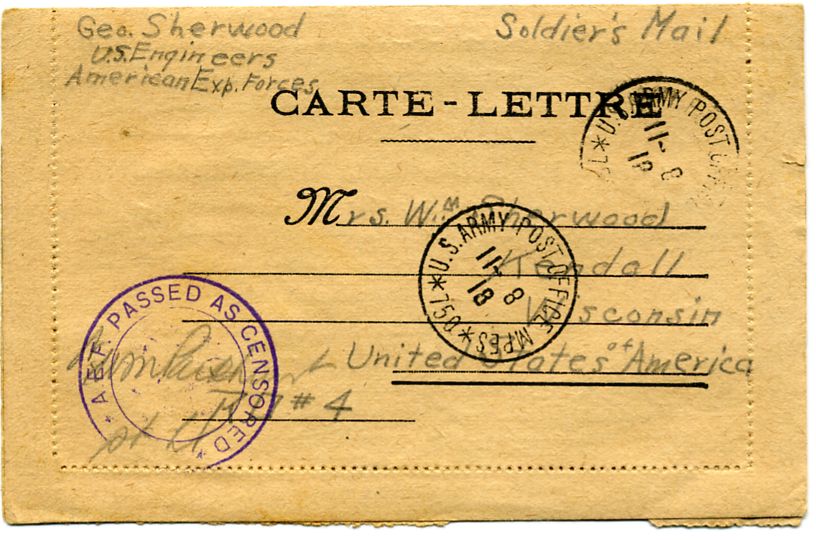 Geo. Sherwood
U.S. Engineers
American Exp. Forces
Soldier's Mail
CARTE-LETTRE
* U.S. ARMY POST OFFICE
11-8
18
Mrs. Wm Sherwood
Kendall
Wisconsin
United States of America
#4
* U.S. ARMY POST OFFICE M.P.E.S.
11-8
18
A.E.F. PASSED AS CENSORED